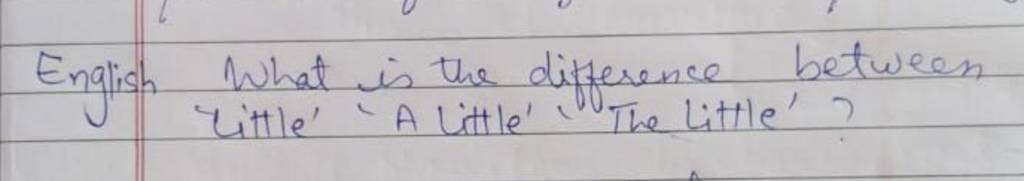 English What is the difference between
'Little' 'A Little' 'The Little' ?